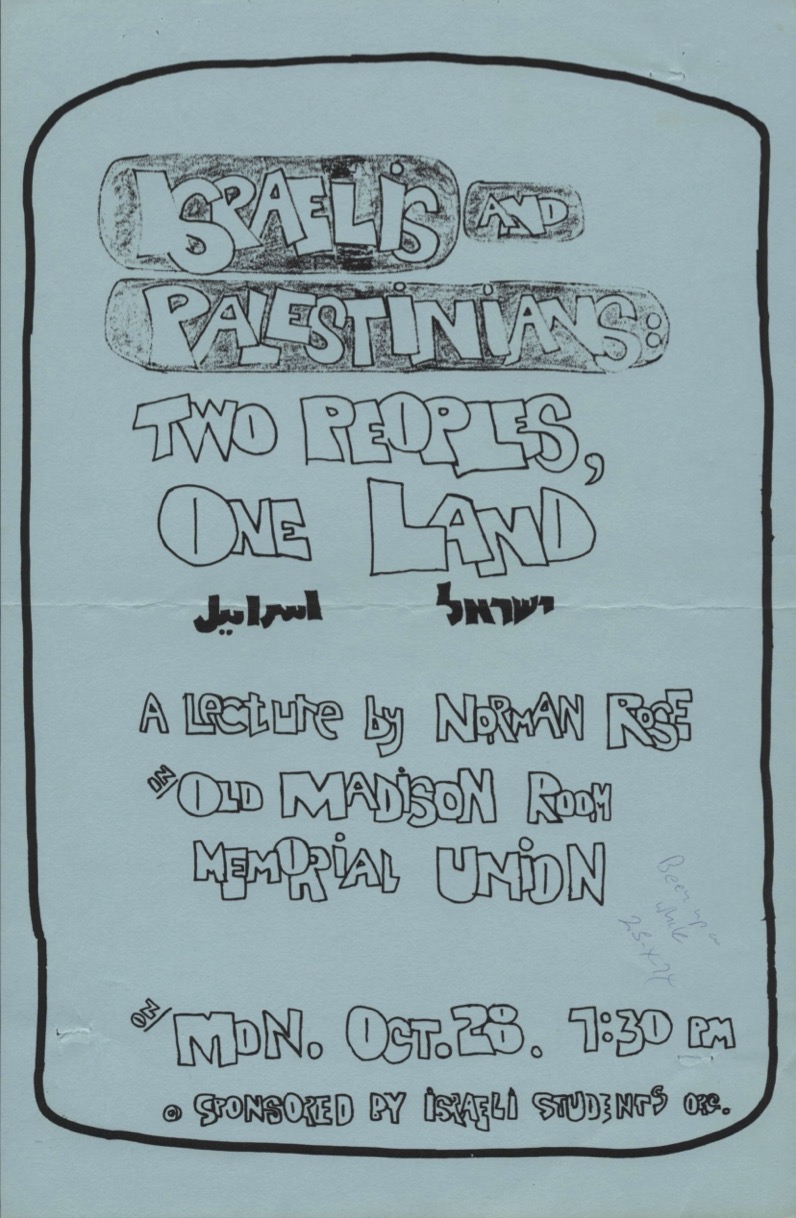 ISRAELIS AND
PALESTINIANS:
TWO PEOPLES,
ONE LAND
اسرائيل ישראל
A Lecture by NORMAN ROSE
IN/ OLD MADISON ROOM
MEMORIAL UNION
Been up a
while
ON/ MON. OCT. 28. 7:30 PM
SPONSORED BY ISRAELI STUDENTS ORG.